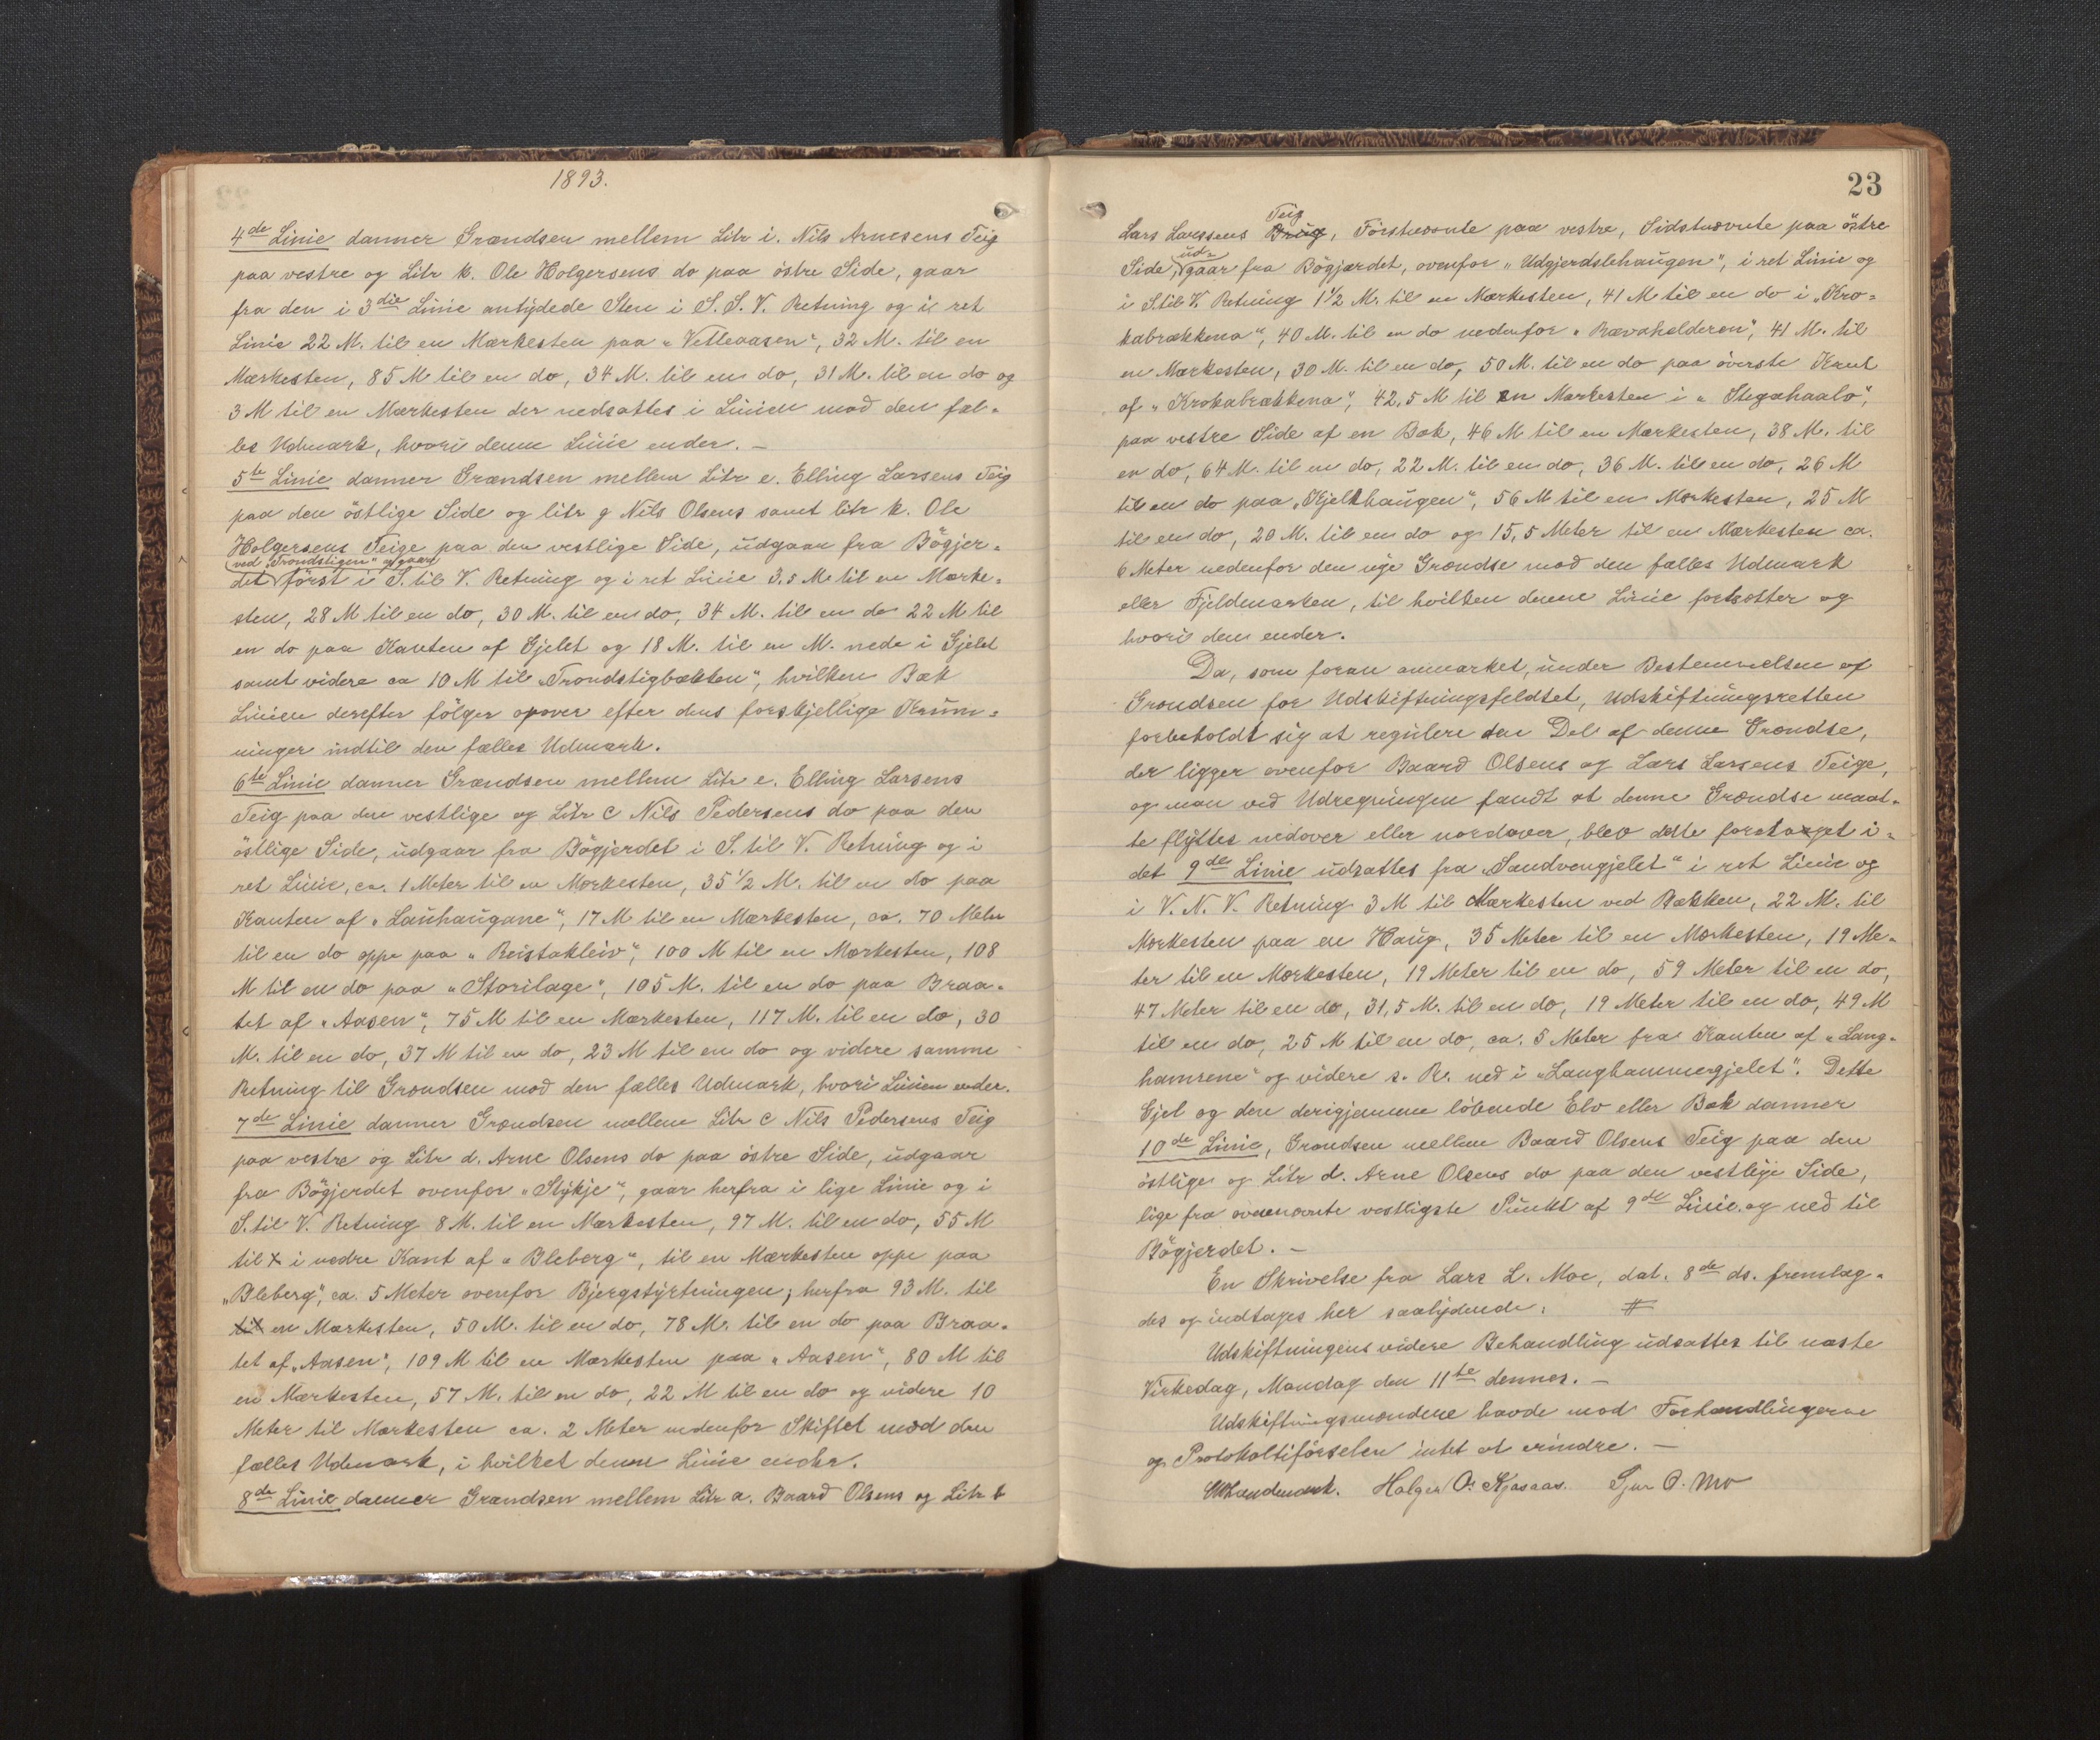 1893.
4de Linie danner Grændsen mellem Litr i. Nils Arnesens Teig
paa vestre og Litr k. Ole Holgersens do paa östre Side, gaar
fra den i 3die Linie antydede Sten i S. S. V. Retning og i ret
Linie 22 M. til en Mærkesten paa „Vetleaasen“, 32 M. til en
Mærkesten, 85 M til en do, 34 M. til en do, 31 M. til en do og
3 M til en Mærkesten der nedsattes i Linien mod den fæl-
les Udmark, hvori denne Linie ender. —
5te Linie danner Grændsen mellem Litr e. Elling Larsens Teig
paa den östlige Side og litr g Nils Olsens samt litr k. Ole
Holgersens Teige paa den vestlige Side, udgaar fra Bögjer-
ved „Trondstigen“ og gaar
det först i S. til V. Retning og i ret Linie 3,5 M til en Mærke-
sten, 28 M til en do, 30 M. til en do, 34 M. til en do 22 M til
en do paa Kanten af Gjelet og 18 M. til en M. nede i Gjelet
samt videre ca 10 M til „Trondstigbækken“, hvilken Bæk
Linien derefter fölger opover efter dens forskjellige Krüm-
ninger indtil den fælles Udmark.
6te Linie danner Grændsen mellem Litr e. Elling Larsens
Teig paa den vestlige og Litr C Nils Pedersens do paa den
östlige Side, udgaar fra Bögjerdet i S. til V. Retning og i
ret Linie, ca. 1 Meter til en Mærkesten, 35 1/2 M. til en do paa
Kanten af „Lauhaugane“, 17 M til en Mærkesten, ca. 70 Meter
til en do oppe paa „Reistakleiv“, 100 M til en Mærkesten, 108
M til en do paa „Storilage“, 105 M. til en do paa Braa-
tet af „Aasen“, 75 M til en Mærkesten, 117 M. til en do, 30
M. til en do, 37 M til en do, 23 M til en do og videre samme
Retning til Grændsen mod den fælles Udmark, hvori Linien ender.
7de Linie danner Grændsen mellem Litr C Nils Pedersens Teig
paa vestre og Litr d. Arne Olsens do paa östre Side, udgaar
fra Bögjerdet ovenfor „Stykje“, gaar herfra i lige Linie og i
S. til V. Retning 8 M. til en Mærkesten, 97 M. til en do, 55 M
til x i nedre Kant af „Bleberg“, til en Mærkesten oppe paa
„Bleberg“, ca. 5 Meter ovenfor Bjergstyrtningen; herfra 93 M. til
til en Mærkesten, 50 M. til en do, 78 M. til en do paa Braa-
tet af „Aasen“, 109 M til en Mærkesten paa „Aasen“, 80 M til
en Mærkesten, 57 M. til en do, 22 M til en do og videre 10
Meter til Mærkesten ca. 2 Meter nedenfor Skiftet mod den
fælles Udmark, i hvilket denne Linie ender.
8de Linie danner Grændsen mellem Litr a. Baard Olsens og Litr b
23
Teig
Lars Larssens Brug, Förstnævnte paa vestre, Sidstnævnte paa östre
ud-
Side, gaar fra Bögjærdet, ovenfor „Udgjerdslehaugen“, i ret Linie og
i S. til V. Retning 1 1/2 M. til en Mærkesten, 41 M til en do i „Kro-
kabrækkena“, 40 M. til en do nedenfor „Rævahelderen“, 41 M. til
en Mærkesten, 30 M. til en do, 50 M. til en do paa överste Kant
af „Krokabrækkena“, 42,5 M til en Mærkesten i „Stegahaalo“,
paa vestre Side af en Bæk, 46 M til en Mærkesten, 38 M. til
en do, 64 M. til en do, 22 M. til en do, 36 M. til en do, 26 M
til en do paa „Kjelkhaugen“, 56 M til en Mærkesten, 25 M
til en do, 20 M. til en do og 15,5 Meter til en Mærkesten ca.
6 Meter nedenfor den nye Grændse mod den fælles Udmark
eller Fjeldmarken, til hvilken denne Linie fortsætter og
hvori den ender.
Da, som foran anmærket, under Bestemmelsen af
Grændsen for Udskiftningsfeldtet, Udskiftningsretten
forbeholdt sig at regulere den Del af denne Grændse,
der ligger ovenfor Baard Olsens og Lars Larsens Teige,
og man ved Udregningen fandt at denne Grændse maat-
te flyttes nedover eller nordover, blev dette foretaget i-
det 9de Linie udsattes fra „Sandvengjelet“ i ret Linie og
i V. N. V. Retning 3 M til Mærkesten ved Bækken, 22 M. til
Mærkesten paa en Haug, 35 Meter til en Mærkesten, 19 Me-
ter til en Mærkesten, 19 Meter til en do, 59 Meter til en do,
47 Meter til en do, 31,5 M. til en do, 19 Meter til en do, 49 M
til en do, 25 M til en do, ca. 5 Meter fra Kanten af „Lang-
hamrene“ og videre s. R. ned i „Langhammergjelet“. Dette
Gjel og den derigjennem löbende Elv eller Bæk danner
10de Linie, Grændsen mellem Baard Olsens Teig paa den
östlige og Litr d. Arne Olsens do paa den vestlige Side,
lige fra ovennævnte vestligste Punkt af 9de Linie og ned til
Bögjerdet. —
En Skrivelse fra Lars L. Moe, dat. 8de ds. fremlæg-
des og indtages her saalydende: #
Udskiftningens videre Behandling udsattes til næste
Virkedag, Mandag den 11te dennes. —
Udskiftningsmændene havde mod Forhandlingerne
og Protokoltilförselen intet at erindre. —
Holger O. Kjosaas. Sjur O. Mo